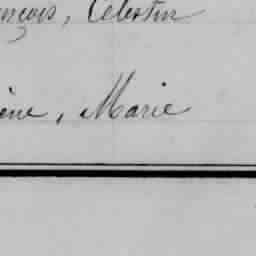 ançois, Célestin
ène, Marie